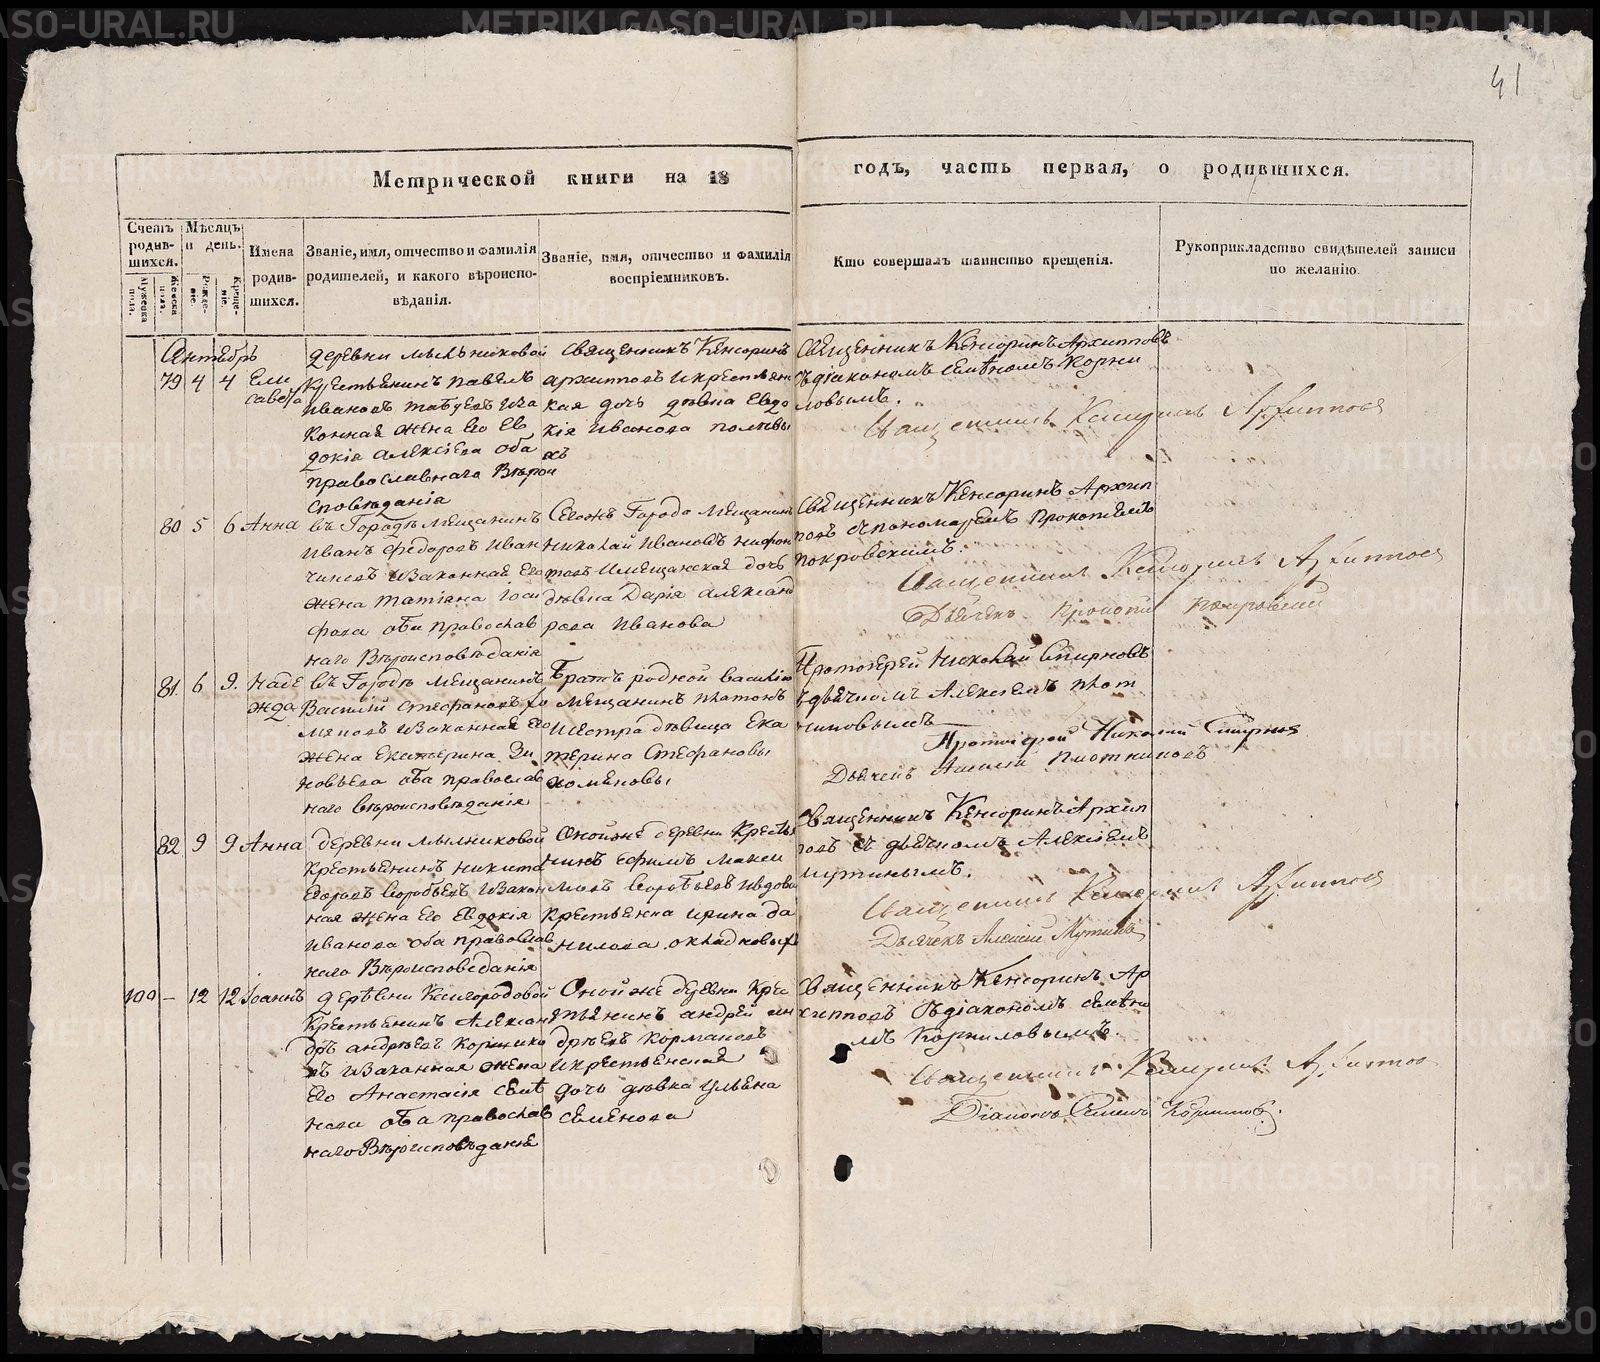 41
Метрической книги на 18 годъ, часть первая, о родившихся.
Счетъ родив-шихся.
Мужеска пола.
Женска пола.
Мѣсяцъ и день.
Рожде-ніе.
Креще-ніе.
Имена родив-шихся.
Званіе, имя, отчество и фамилія родителей, и какого вѣроиспо-вѣданія.
Званіе, имя, отчество и фамилія воспріемниковъ.
Кто совершалъ таинство крещенія.
Рукоприкладство свидѣтелей записи по желанію.
79 4 4 Ели
савета
деревни мыльниковой
Крестьянинъ Павелъ
Ивановъ
конная жена его Ев
докія Алексѣева оба
православнаго Вѣрои
сповѣданія
Священникъ Кенсоринъ
Архиповъ и крестьян
ская дочь дѣвка Евдо
кія Иванова
Священникъ Кенсоринъ Архиповъ
съ діакономъ Семеномъ Корни
ловымъ.
Священникъ Кенсоринъ Архиповъ
80 5 6 Анна
въ Городѣ мещанинъ
Иванъ Федоровъ Иван
чиковъ и законная его
жена Татіана Іоси
фова оба православ
наго Вѣроисповѣданія
Сегожъ Города мещанинъ
Николай Ивановъ Нифон
товъ и мещанская дочь
дѣвка Дарія Александ
рова Иванова
Священникъ Кенсоринъ Архип
повъ съ пономаремъ Прокопіемъ
покровскимъ.
Священникъ Кенсоринъ Архиповъ
Дьячекъ Прокопій Покровскій
81. 6 9. Наде
жда
въ Городѣ мещанинъ
Василій Стефановъ Хо
мяковъ и законная его
жена Екатерина Зи
новьева оба православ
наго вѣроисповѣданія
Братъ родной василія
мещанинъ платонъ
и сестра дѣвица Ека
терина Стефановы
хомяковы
Протоіерей Николай Смирновъ
съ дьячкомъ Алексѣемъ плот
никовымъ
Протоіерей Николай Смирновъ
Дьячекъ Алексѣй Плотниковъ
82 9 9 Анна
деревни мыльниковой
Крестьянинъ никита
Егоровъ Воробьевъ и закон
ная жена его Евдокія
Иванова оба православ
наго Вѣроисповеданія
Оной же деревни Кресть
янинъ Ефимъ Макси
мовъ Воробьевъ и вдова
Крестьянка Ирина Да
нилова окладовыхъ
Священникъ Кенсоринъ Архип
повъ съ дьячкомъ Алексѣемъ
мутинымъ.
Священникъ Кенсоринъ Архиповъ
Дьячекъ Алексѣй Мутинъ
100 — 12 12 Іоаннъ
деревни Кайгородовой
Крестьянинъ Алексан
дръ андрѣевъ
въ и законная жена
его Анастасія Семе
нова оба православ
наго Вѣроисповѣданія
Оной же деревни Крес
тьянинъ андрей ан
дрѣевъ Кормановъ
и крестьянская
дочь дѣвка Ульяна
Семенова
Священникъ Кенсоринъ Ар
хиповъ съ діакономъ Семено
мъ Корниловымъ.
Священникъ Кенсоринъ Архиповъ
Діаконъ Семенъ Корниловъ.
METRIKI.GASO-URAL.RU